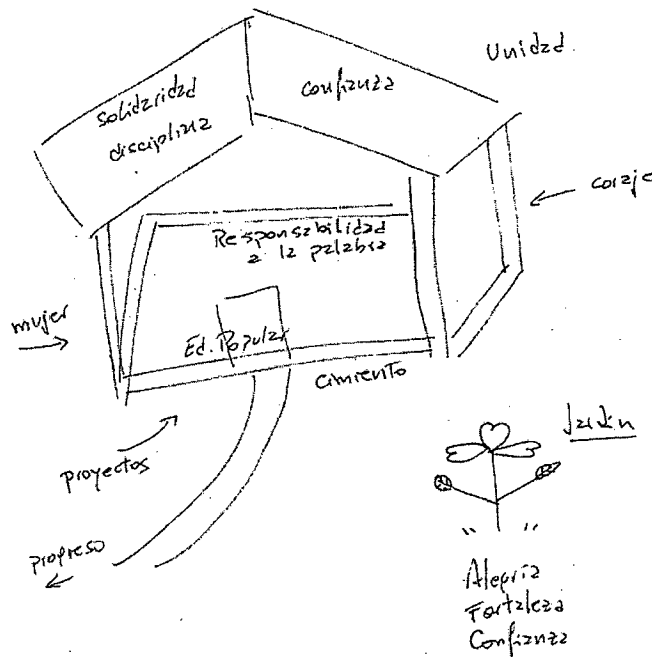 Unidad.
Solidaridad
disciplina
confianza
coraje
Responsabilidad
a la palabra
mujer
Ed. Popular
cimiento
proyectos
Jardín
progreso
Alegría
Fortaleza
Confianza